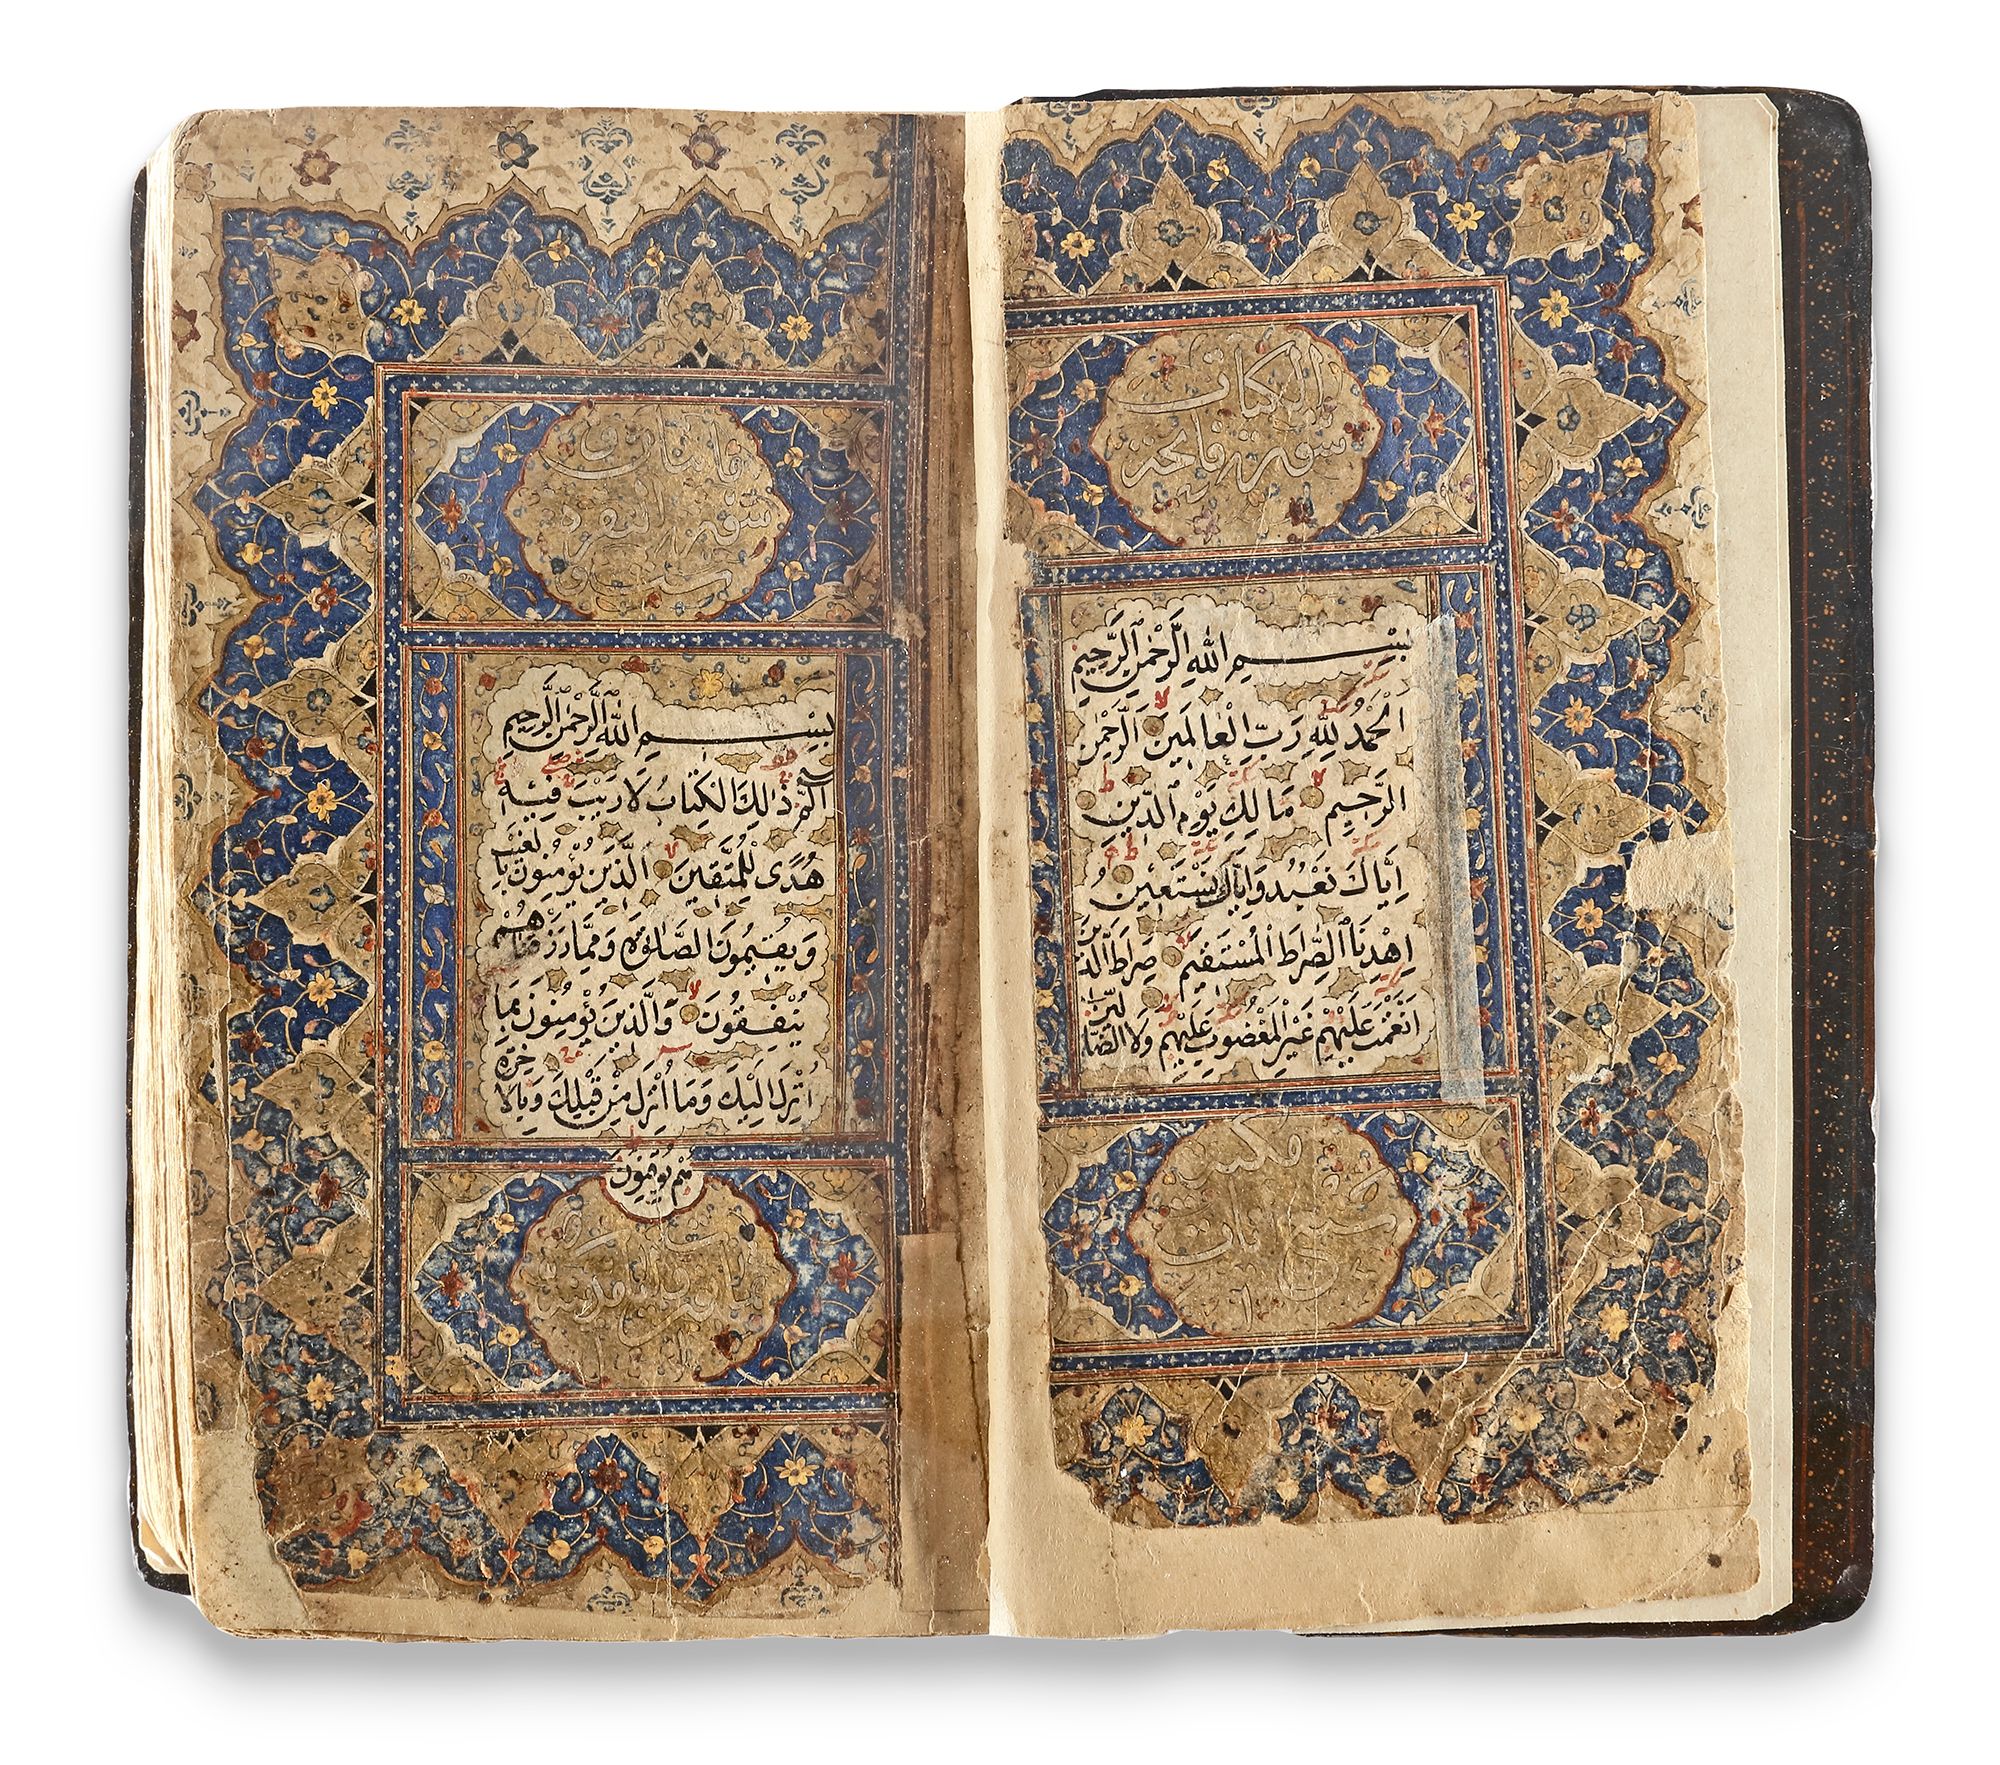 سورة فاتحة
الكتاب
بِسْمِ اللهِ الرَّحْمٰنِ الرَّحِيمِ
اَلْحَمْدُ لِلّٰهِ رَبِّ الْعَالَمِينَ الرَّحْمٰنِ
الرَّحِيمِ مَالِكِ يَوْمِ الدِّينِ
اِيَّاكَ نَعْبُدُ وَاِيَّاكَ نَسْتَعِينُ
اِهْدِنَا الصِّرَاطَ الْمُسْتَقِيمَ صِرَاطَ الَّذِينَ
اَنْعَمْتَ عَلَيْهِمْ غَيْرِ الْمَغْضُوبِ عَلَيْهِمْ وَلَا الضَّالِّينَ
مكية
سبع آيات
سورة البقرة
مائتان و
ست و
بِسْمِ اللهِ الرَّحْمٰنِ الرَّحِيمِ
الم ذٰلِكَ الْكِتَابُ لَا رَيْبَ فِيهِ
هُدًى لِلْمُتَّقِينَ الَّذِينَ يُؤْمِنُونَ بِالْغَيْبِ
وَيُقِيمُونَ الصَّلٰوةَ وَمِمَّا رَزَقْنَاهُمْ
يُنْفِقُونَ وَالَّذِينَ يُؤْمِنُونَ بِمَا
اُنْزِلَ اِلَيْكَ وَمَا اُنْزِلَ مِنْ قَبْلِكَ وَبِالْاٰخِرَةِ
هُمْ يُوقِنُونَ